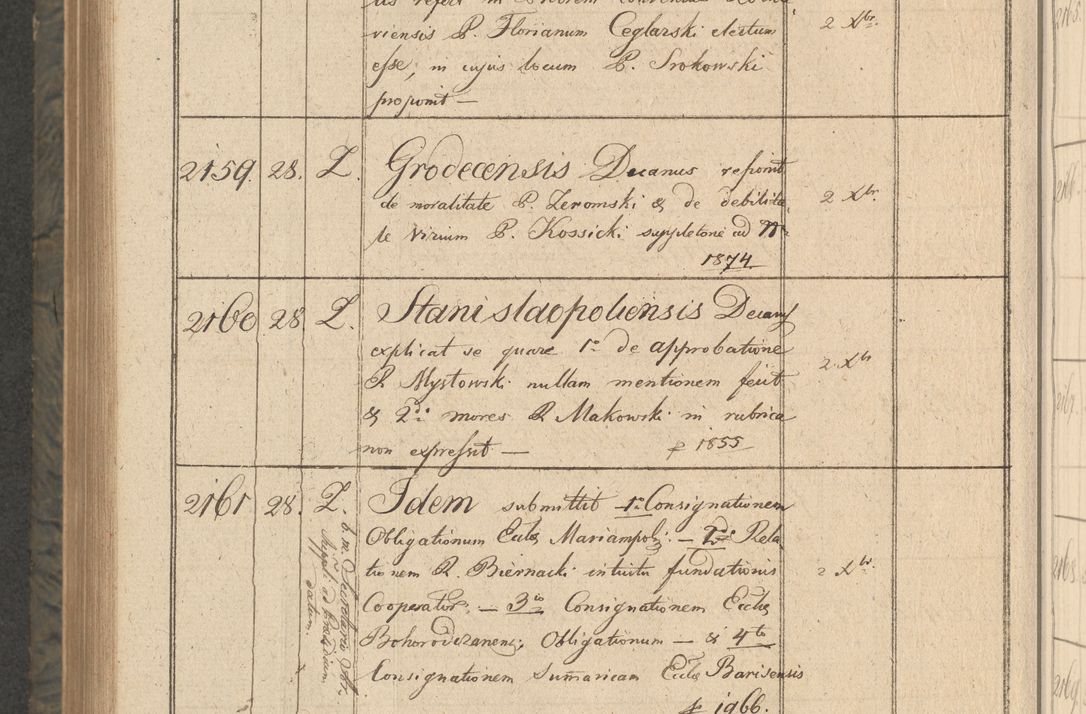 viensis P. Florianum Ceglarski electum
esse, in cujus locum P. Srokowski
proponit —
2 Xbr.
2159. 28. L. Grodecensis Decanus reponit
de moralitate P. Zeromski & de debilita
te virium P. Kossicki suppletorie ad N
1874.
2 Xbr.
2160 28 L. Stanislaopoliensis Decanus
explicat se quare 1o de approbatione
P. Mystowski nullam mentionem fecit
& 2do mores P. Makowski in rubrica
non expressit — p 1855
2 Xbr
2161 28. L. Idem submittit 1o Consignationem
Obligationum Eccles Mariampol: — 2do Rela
tionem P. Biernacki intuitu fundationis
Cooperator. — 3io Consignationem Eccles
Bohorodczanens: Obligationum — & 4to
Consignationem Sumaricam Eccles Barisensis
p 1966.
2 Xbr.
datum.